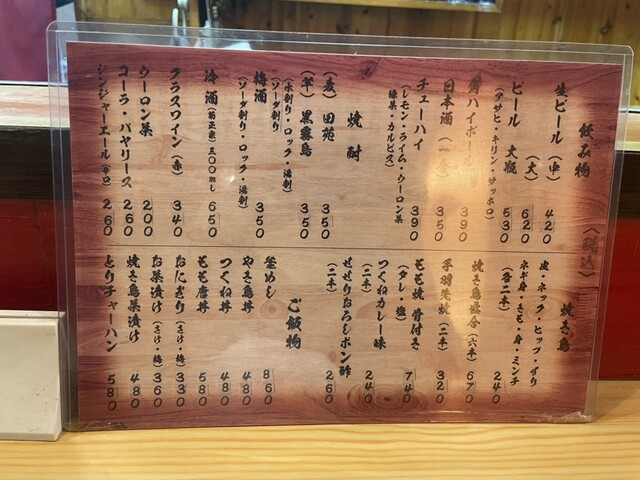 飲み物
(税込)
生ビール (中) 420
(大) 620
ビール 大瓶 530
(アサヒ・キリン・サッポロ)
角ハイボール 390
日本酒 (一合) 350
チューハイ 390
(レモン・ライム・ウーロン
緑茶・カルピス)
焼酎
(麦) 田苑 350
(芋) 黒霧島 350
(水割り・ロック・湯割)
(ソーダ割り)
梅酒 350
(ソーダ割り・ロック・湯割)
冷酒 (菊正宗) 三〇〇ml 650
グラスワイン (赤) 340
ウーロン茶 200
コーラ・バヤリース 260
ジンジャーエール (辛口) 260
焼き鳥
皮・ホック・ヒップ・ずり
ネギ身・きも・身・ミンチ
(各二本) 240
焼き鳥盛合 (六本) 670
手羽先焼 (二本) 320
もも焼 骨付き 740
(タレ・塩)
つくねカレー味 240
(二本)
せせりおろしポン酢 260
(二本)
ご飯物
釜めし 860
やき鳥丼 480
つくね丼 480
もも唐丼 580
おにぎり (さけ・梅) 330
お茶漬け (さけ・梅) 360
焼き鳥茶漬け 480
とりチャーハン 580